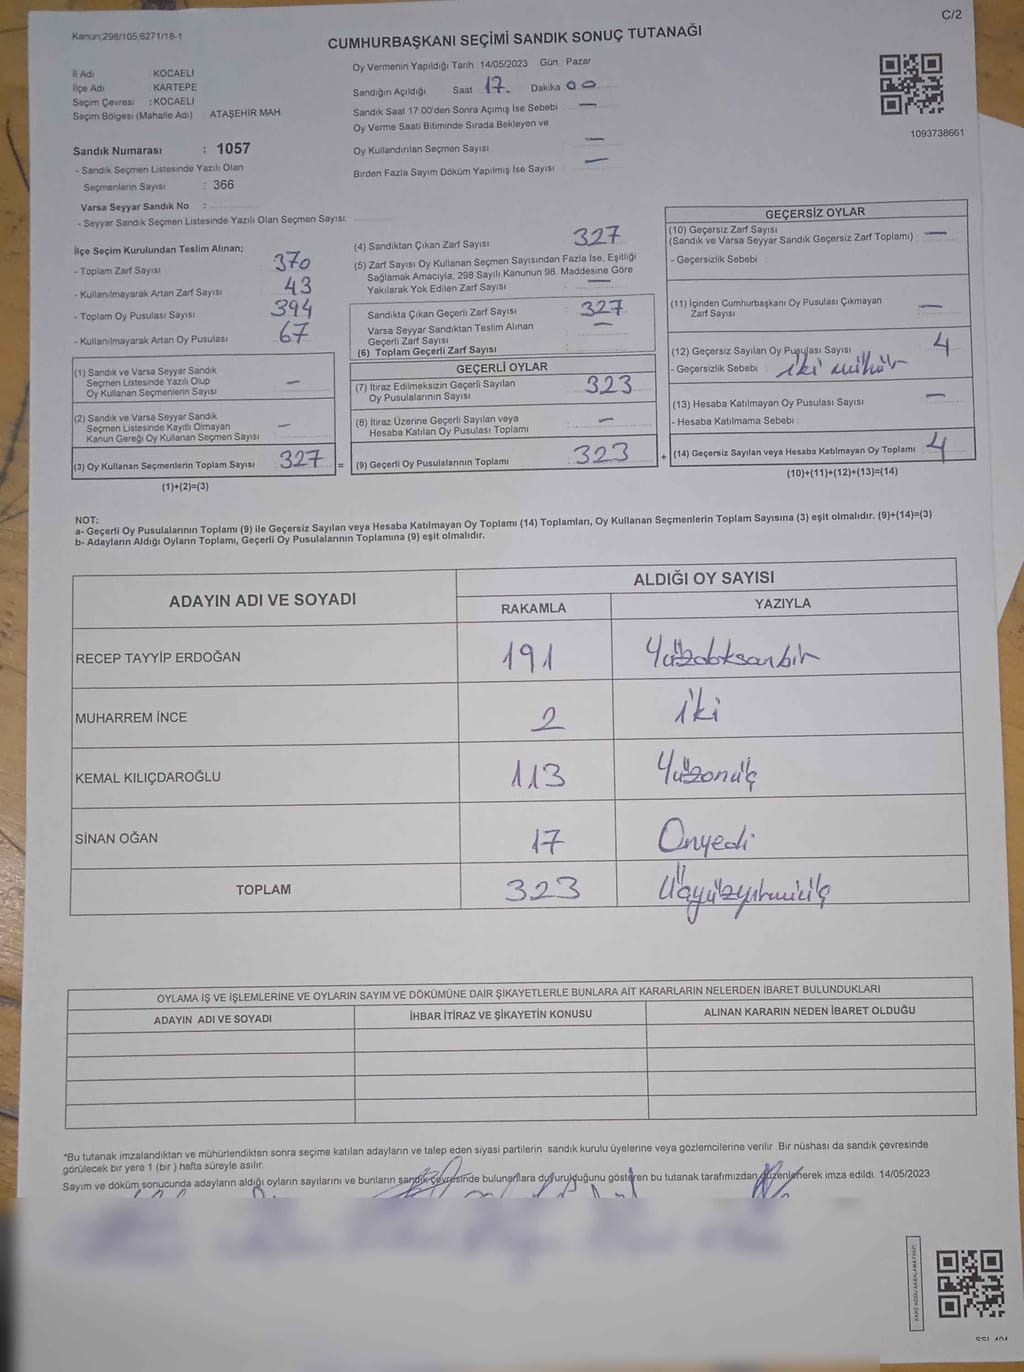 C/2
Kanun:298/105,6271/18-1
CUMHURBAŞKANI SEÇİMİ SANDIK SONUÇ TUTANAĞI
İl Adı : KOCAELİ
İlçe Adı : KARTEPE
Seçim Çevresi : KOCAELİ
Seçim Bölgesi (Mahalle Adı) : ATAŞEHİR MAH
Sandık Numarası : 1057
- Sandık Seçmen Listesinde Yazılı Olan
Seçmenlerin Sayısı : 366
Varsa Seyyar Sandık No :
- Seyyar Sandık Seçmen Listesinde Yazılı Olan Seçmen Sayısı:
Oy Vermenin Yapıldığı Tarih 14/05/2023 Gün Pazar
Sandığın Açıldığı Saat 17. Dakika 00
Sandık Saat 17.00'den Sonra Açımış İse Sebebi —
Oy Verme Saati Bitiminde Sırada Bekleyen ve
Oy Kullandırılan Seçmen Sayısı —
Birden Fazla Sayım Döküm Yapılmış İse Sayısı —
1093738661
İlçe Seçim Kurulundan Teslim Alınan;
- Toplam Zarf Sayısı 370
- Kullanılmayarak Artan Zarf Sayısı 43
- Toplam Oy Pusulası Sayısı 394
- Kullanılmayarak Artan Oy Pusulası 67
(1) Sandık ve Varsa Seyyar Sandık
Seçmen Listesinde Yazılı Olup
Oy Kullanan Seçmenlerin Sayısı —
(2) Sandık ve Varsa Seyyar Sandık
Seçmen Listesinde Kayıtlı Olmayan
Kanun Gereği Oy Kullanan Seçmen Sayısı —
(3) Oy Kullanan Seçmenlerin Toplam Sayısı 327
(1)+(2)=(3)
(4) Sandıktan Çıkan Zarf Sayısı 327
(5) Zarf Sayısı Oy Kullanan Seçmen Sayısından Fazla İse, Eşitliği
Sağlamak Amacıyla, 298 Sayılı Kanunun 98. Maddesine Göre
Yakılarak Yok Edilen Zarf Sayısı —
Sandıkta Çıkan Geçerli Zarf Sayısı 327
Varsa Seyyar Sandıktan Teslim Alınan —
Geçerli Zarf Sayısı
(6) Toplam Geçerli Zarf Sayısı
GEÇERLİ OYLAR
(7) İtiraz Edilmeksizin Geçerli Sayılan
Oy Pusulalarının Sayısı 323
(8) İtiraz Üzerine Geçerli Sayılan veya
Hesaba Katılan Oy Pusulası Toplamı —
= (9) Geçerli Oy Pusulalarının Toplamı 323
GEÇERSİZ OYLAR
(10) Geçersiz Zarf Sayısı
(Sandık ve Varsa Seyyar Sandık Geçersiz Zarf Toplamı) —
- Geçersizlik Sebebi
(11) İçinden Cumhurbaşkanı Oy Pusulası Çıkmayan
Zarf Sayısı —
(12) Geçersiz Sayılan Oy Pusulası Sayısı 4
- Geçersizlik Sebebi iki mühür
(13) Hesaba Katılmayan Oy Pusulası Sayısı —
- Hesaba Katılmama Sebebi
+ (14) Geçersiz Sayılan veya Hesaba Katılmayan Oy Toplamı 4
(10)+(11)+(12)+(13)=(14)
NOT:
a- Geçerli Oy Pusulalarının Toplamı (9) ile Geçersiz Sayılan veya Hesaba Katılmayan Oy Toplamı (14) Toplamları, Oy Kullanan Seçmenlerin Toplam Sayısına (3) eşit olmalıdır. (9)+(14)=(3)
b- Adayların Aldığı Oyların Toplamı, Geçerli Oy Pusulalarının Toplamına (9) eşit olmalıdır.
ADAYIN ADI VE SOYADI ALDIĞI OY SAYISI
RAKAMLA YAZIYLA
RECEP TAYYİP ERDOĞAN 191 Yüzdoksanbir
MUHARREM İNCE 2 iki
KEMAL KILIÇDAROĞLU 113 Yüzonüç
SİNAN OĞAN 17 Onyedi
TOPLAM 323 Üçyüzyirmiüç
OYLAMA İŞ VE İŞLEMLERİNE VE OYLARIN SAYIM VE DÖKÜMÜNE DAİR ŞİKAYETLERLE BUNLARA AİT KARARLARIN NELERDEN İBARET BULUNDUKLARI
ADAYIN ADI VE SOYADI İHBAR İTİRAZ VE ŞİKAYETİN KONUSU ALINAN KARARIN NEDEN İBARET OLDUĞU
*Bu tutanak imzalandıktan ve mühürlendikten sonra seçime katılan adayların ve talep eden siyasi partilerin sandık kurulu üyelerine veya gözlemcilerine verilir Bir nüshası da sandık çevresinde
görülecek bir yere 1 (bir ) hafta süreyle asılır.
Sayım ve döküm sonucunda adayların aldığı oyların sayılarını ve bunların sandık çevresinde bulunanlara duyurulduğunu gösteren bu tutanak tarafımızdan düzenlenerek imza edildi. 14/05/2023
KARE KODU KARALAMAYINIZ!